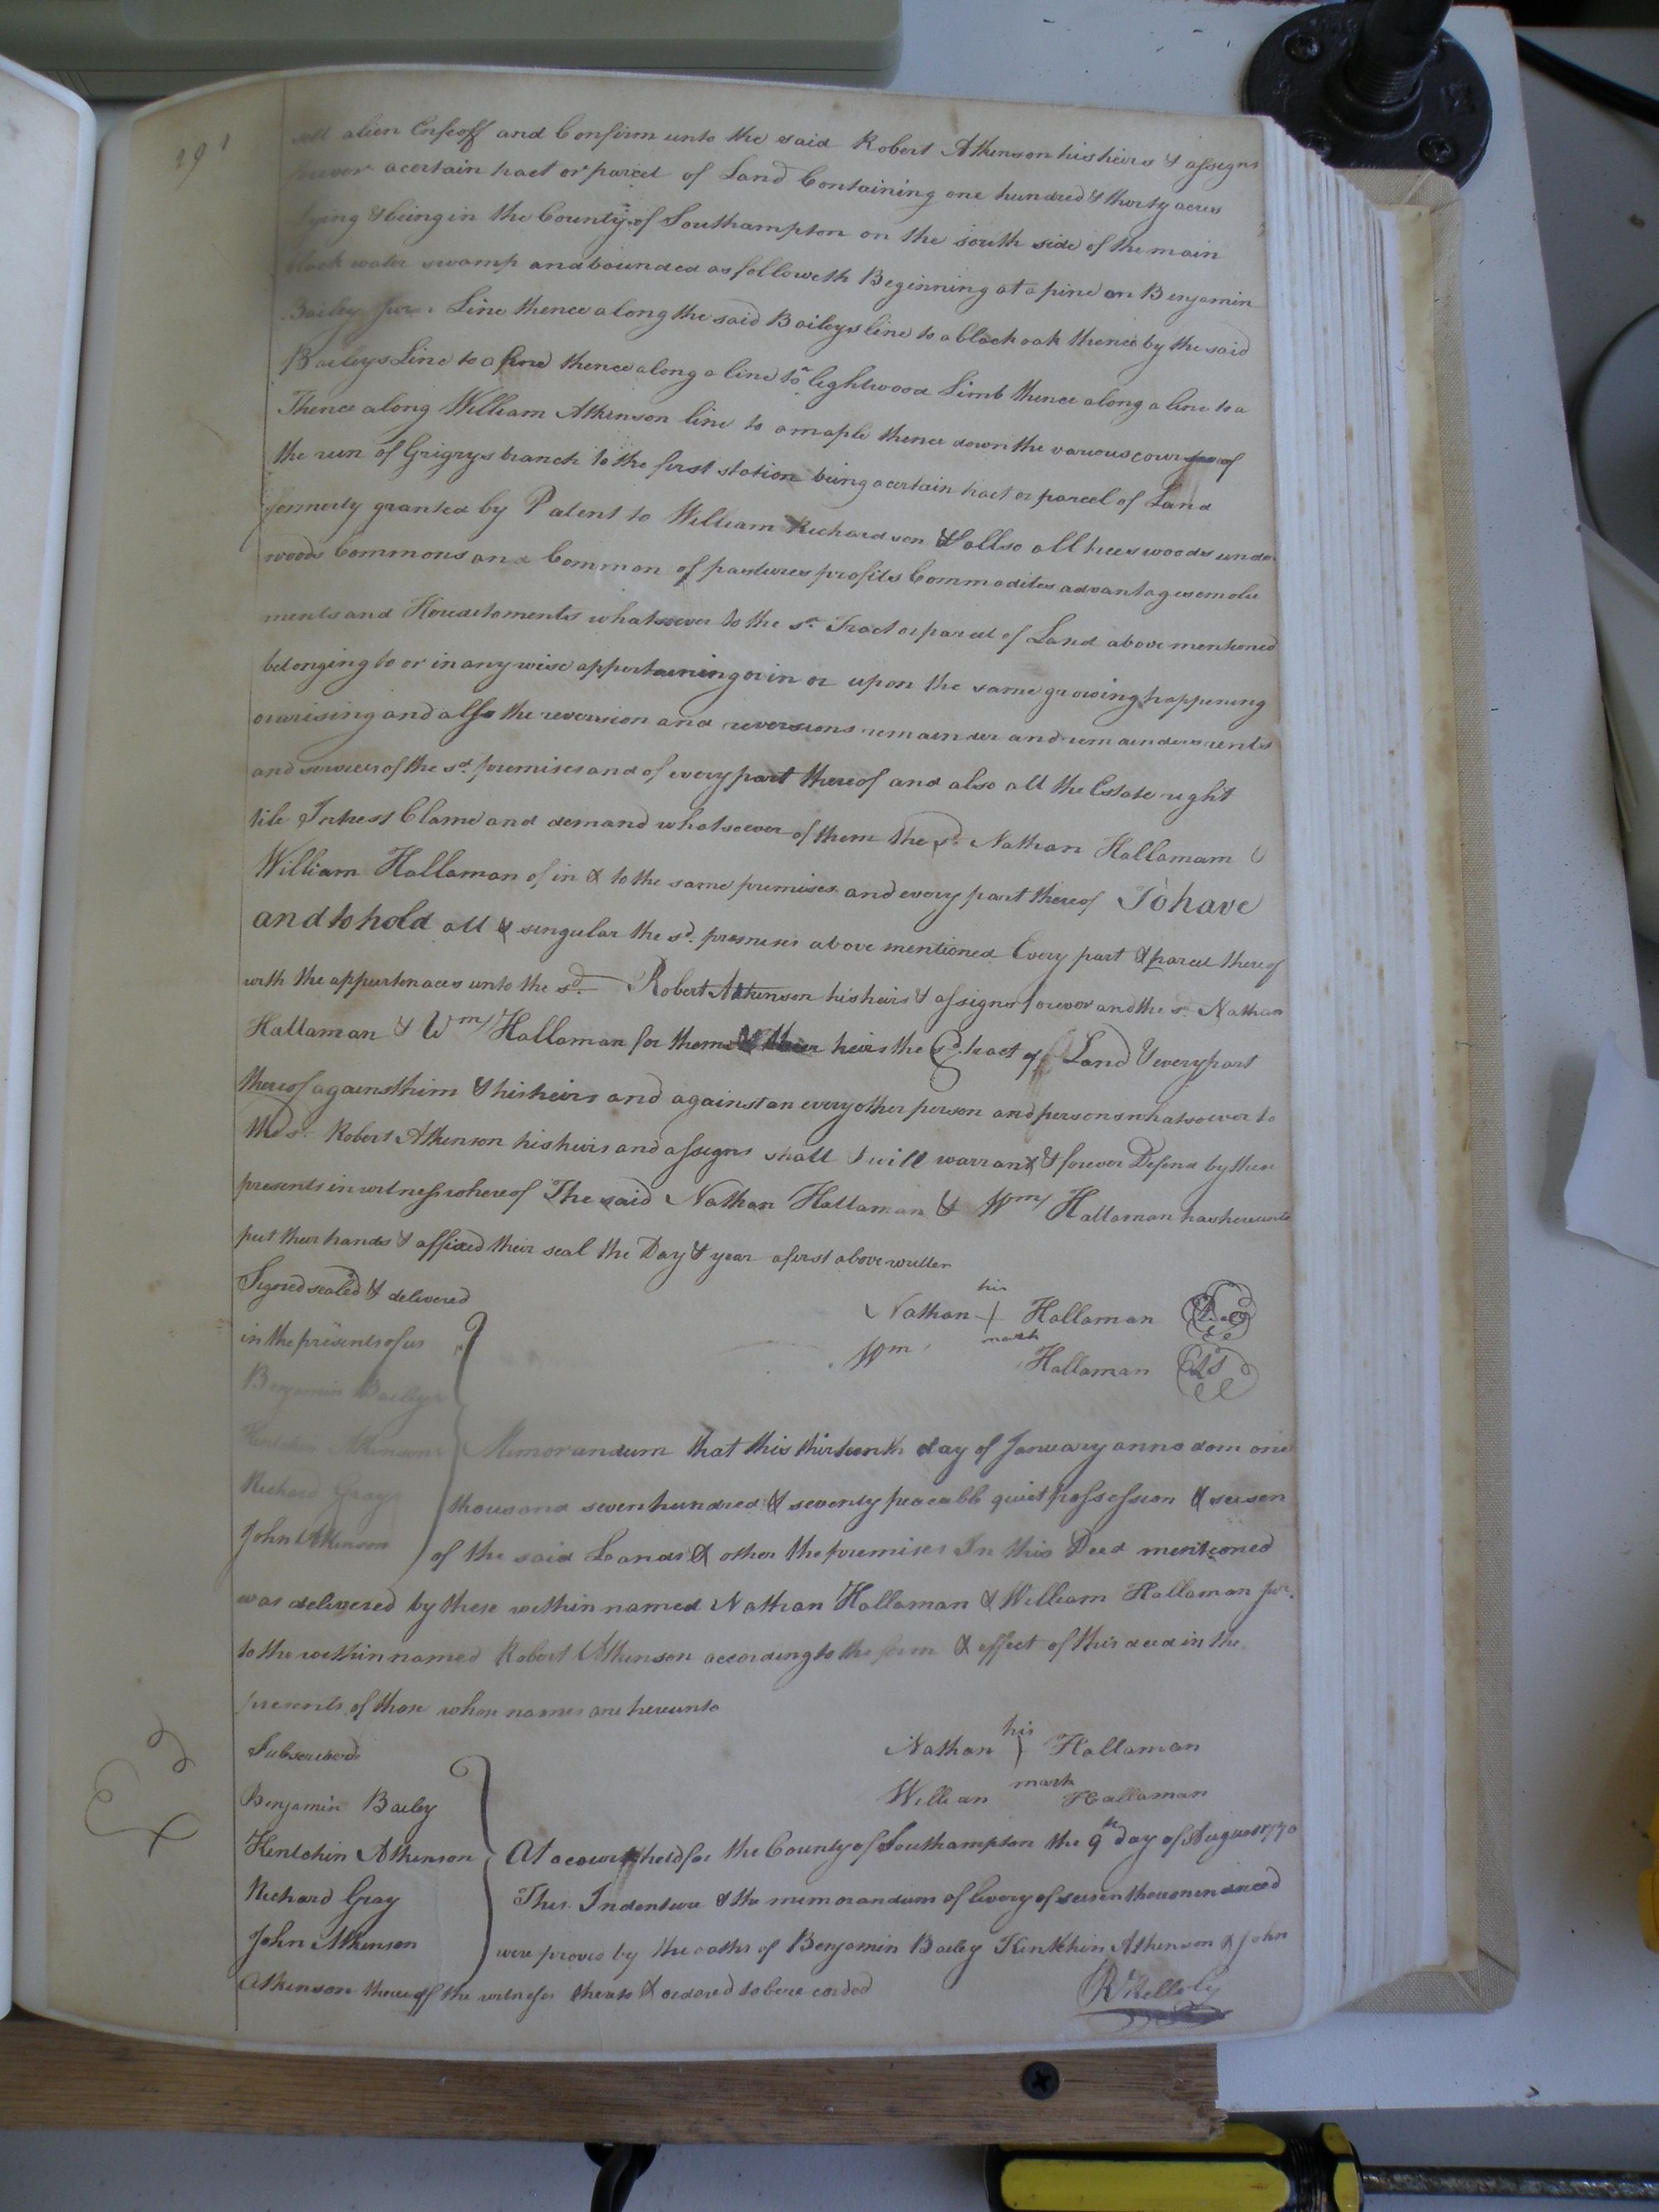 291
sell alien Enfeoff and Confirm unto the said Robert Atkinson his heirs & assigns
forever a certain tract or parcel of Land Containing one hundred & thirty acres
lying & being in the County of Southampton on the south side of the main
black water swamp and bounded as followeth Beginning at a pine on Benjamin
Bailey Jur. Line thence along the said Baileys line to a black oak thence by the said
Baileys Line to a pine thence along a line to a lightwood Limb thence along a line to a
Thence along William Atkinson line to a maple thence down the various courses of
the run of Grigrys branch to the first station being a certain tract or parcel of Land
formerly granted by Patent to William Richardson & allso all trees woods under
woods Commons and Common of pastures profits Commodites advantages emolu
ments and Hereditaments whatsoever to the sd. Tract or parcel of Land above mentioned
belonging to or in any wise appertaining or in or upon the same growing happening
or arising and also the reversion and reversions remainder and remainders rents
and services of the sd. premises and of every part thereof and also all the Estate right
title Intrest Clame and demand whatsoever of them the sd. Nathan Hallamam &
William Hallaman of in & to the same premises and every part thereof To have
and to hold all & singular the sd. premises above mentioned Every part & parcel thereof
with the appurtenaces unto the sd. Robert Atkinson his heirs & assigns forever and the sd. Nathan
Hallaman & Wm Hallaman for them & their heirs the sd. tract of Land & every part
thereof against him & his heirs and against an every other person and persons whatsoever to
the sd. Robert Atkinson his heirs and assigns shall & will warrant & forever Defend by these
presents in witness whereof The said Nathan Hallaman & Wm Hallaman has hereunto
put their hands & affixed their seal the Day & year a first above written
Signed sealed & delivered
in the presents of us
his
Nathan Hallaman
mark
Wm Hallaman LS
Benjamin Bailey
Atkinson
Richard Gray
John Atkinson
Memorandum that this thirteenth day of January anno dom one
thousand seven hundred & seventy peaceable quiet possession & seisen
of the said Lands & other the premises In this Deed mentioned
was delivered by these within named Nathan Hallaman & William Hallaman jur.
to the within named Robert Atkinson according to the form & effect of this deed in the
presents of those whose names are hereunto
Subscribed
his
Nathan Hallaman
mark
William Hallaman
Benjamin Bailey
Kentchin Atkinson
Richard Gray
John Atkinson
At a court held for the County of Southampton the 9th day of August 1770
This Indenture & the memorandum of livery of seisen thereon indorced
were proved by the oaths of Benjamin Bailey Kintchin Atkinson & John
Atkinson three of the witnesses thereto & ordered to be recorded
R Kello Cy